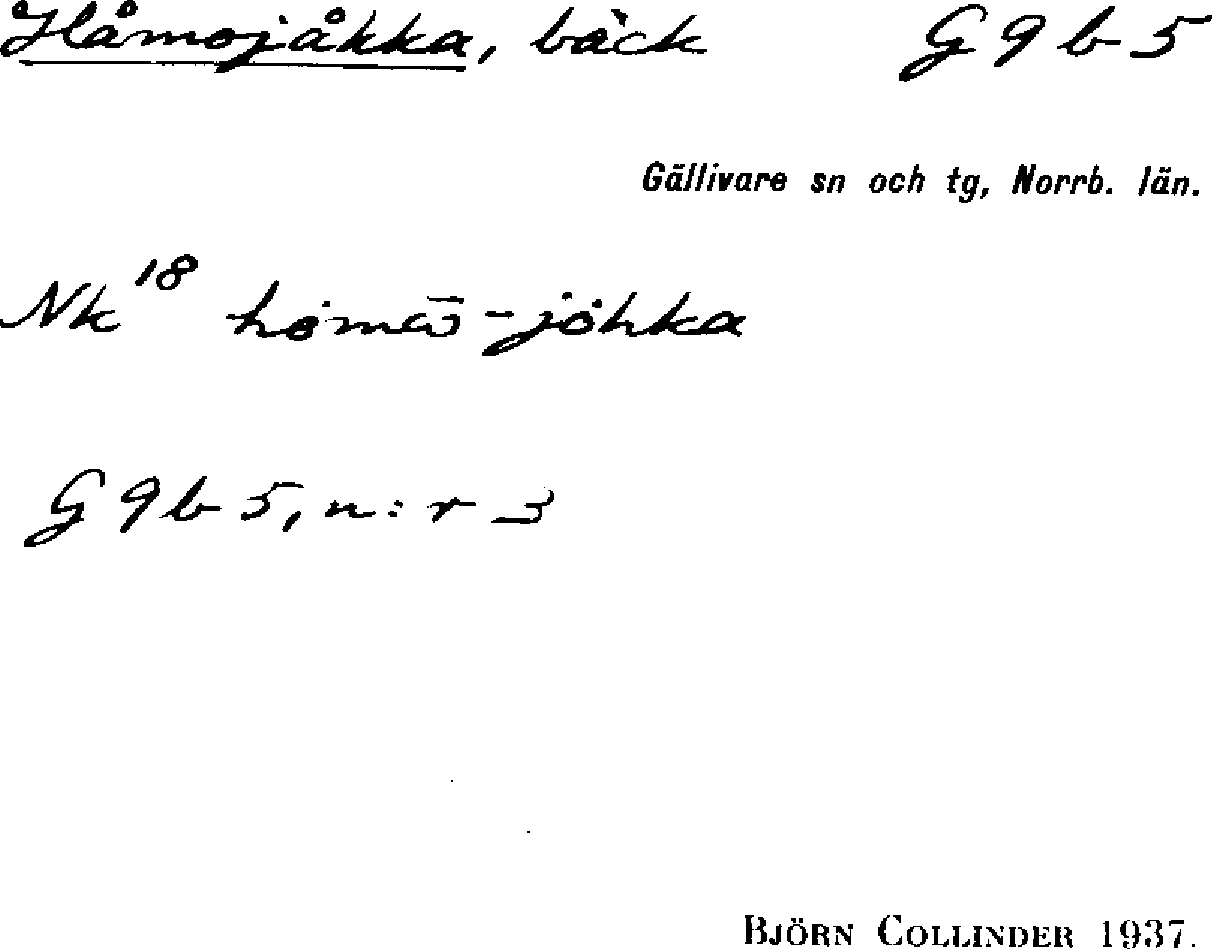 Håmojåkka, bäck G 9 b 5
Gällivare sn och tg, Norrb. län.
Nk 18
G 9 b 5, n:r 3
BJÖRN COLLINDER 1937.